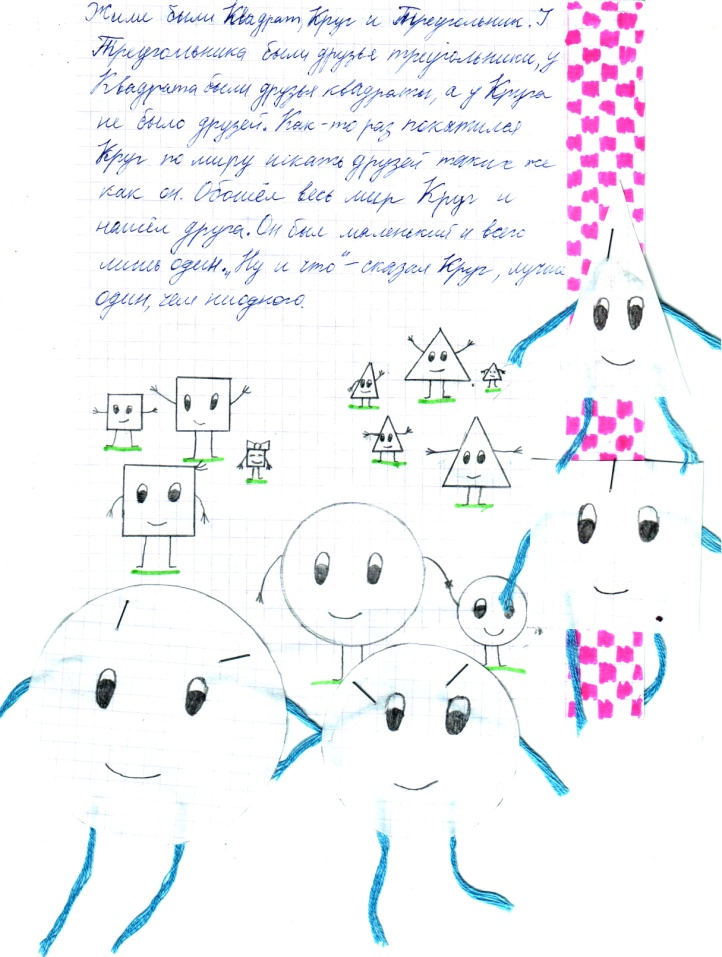 Жили были Квадрат, Круг и Треугольник. У
Треугольника были друзья треугольники, у
Квадрата были друзья квадраты, а у Круга
не было друзей. Как-то раз покатился
Круг по миру искать друзей таких же
как он. Обошёл весь мир Круг и
нашёл друга. Он был маленький и всего
лишь один. „Ну и что" - сказал Круг, лучше
один, чем ниодного.